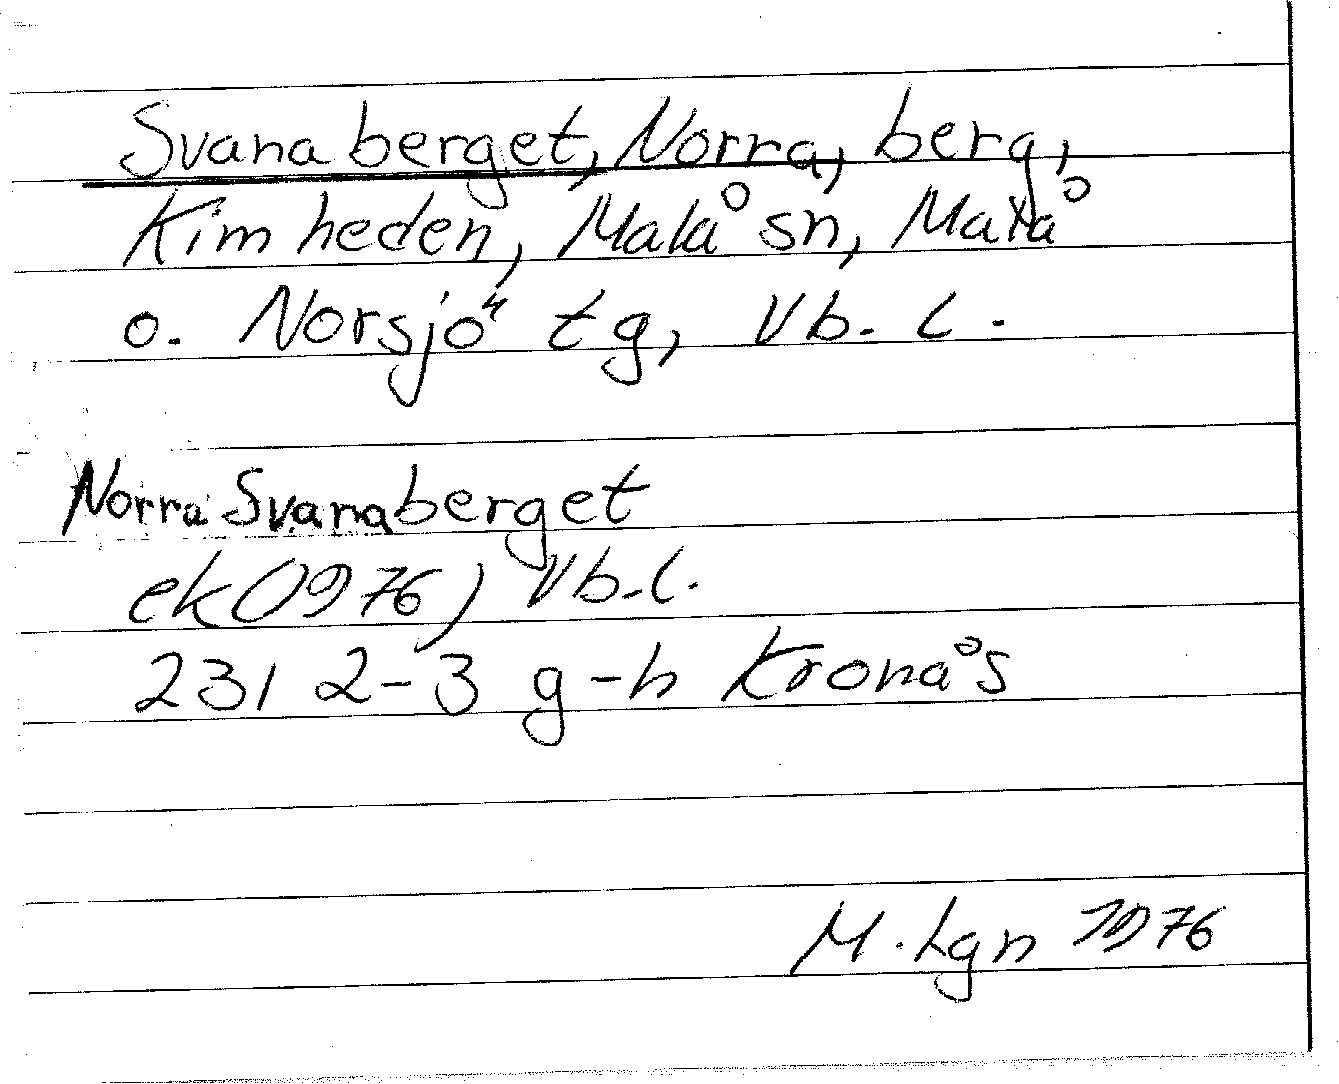 Svanaberget, Norra, berg,
Kimheden, Malå sn, Malå
o. Norsjö tg, Vb. l.
Norra Svanaberget
ek (1976) Vb. l.
231 2-3 g-h Kronås
M. Lgn 1976